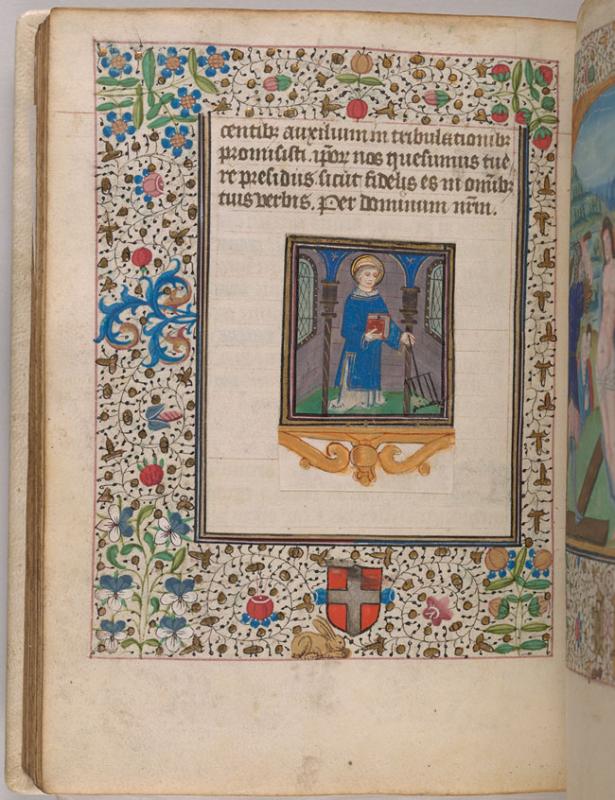 centibꝫ auxilium in tribulationibꝫ
promisisti. ip̄oꝝ nos quesumus tue
re presidiis. sicut fidelis es in om̄ibꝫ
tuis verbis. Per dominum nrm̄.